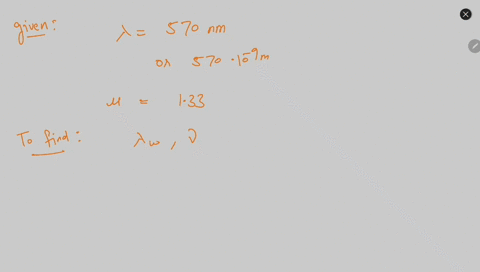 given: λ = 570 nm
or 570 · 10⁻⁹ m
μ = 1.33
To find: λw, ν